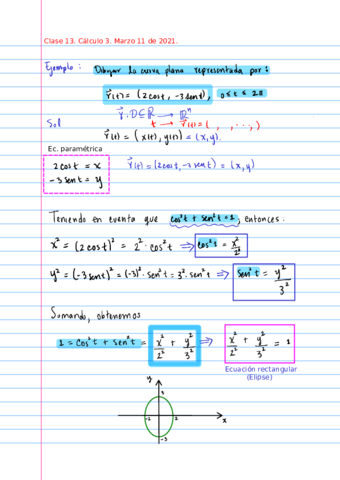 Clase 13. Cálculo 3. Marzo 11 de 2021.
Ejemplo: Dibujar la curva plana representada por:
r⃗(t) = (2cost, -3sent), 0 ≤ t ≤ 2π
r⃗: D ⊆ ℝ → ℝⁿ
Sol t → r⃗(t) = ( , , ..., )
r⃗(t) = (x(t), y(t)) = (x, y).
Ec. paramétrica
r⃗(t) = (2cost, -3sent) = (x, y)
2cost = x
-3sent = y
Teniendo en cuenta que cos²t + sen²t = 1, entonces:
x² = (2cost)² = 2² · cos²t ⇒ cos²t = x²/2²
y² = (-3sent)² = (-3)² · sen²t = 3² · sen²t ⇒ sen²t = y²/3²
Sumando, obtenemos
1 = cos²t + sen²t = x²/2² + y²/3² ⇒ x²/2² + y²/3² = 1
Ecuación rectangular
(Elipse)
y
3
-2 2 x
-3